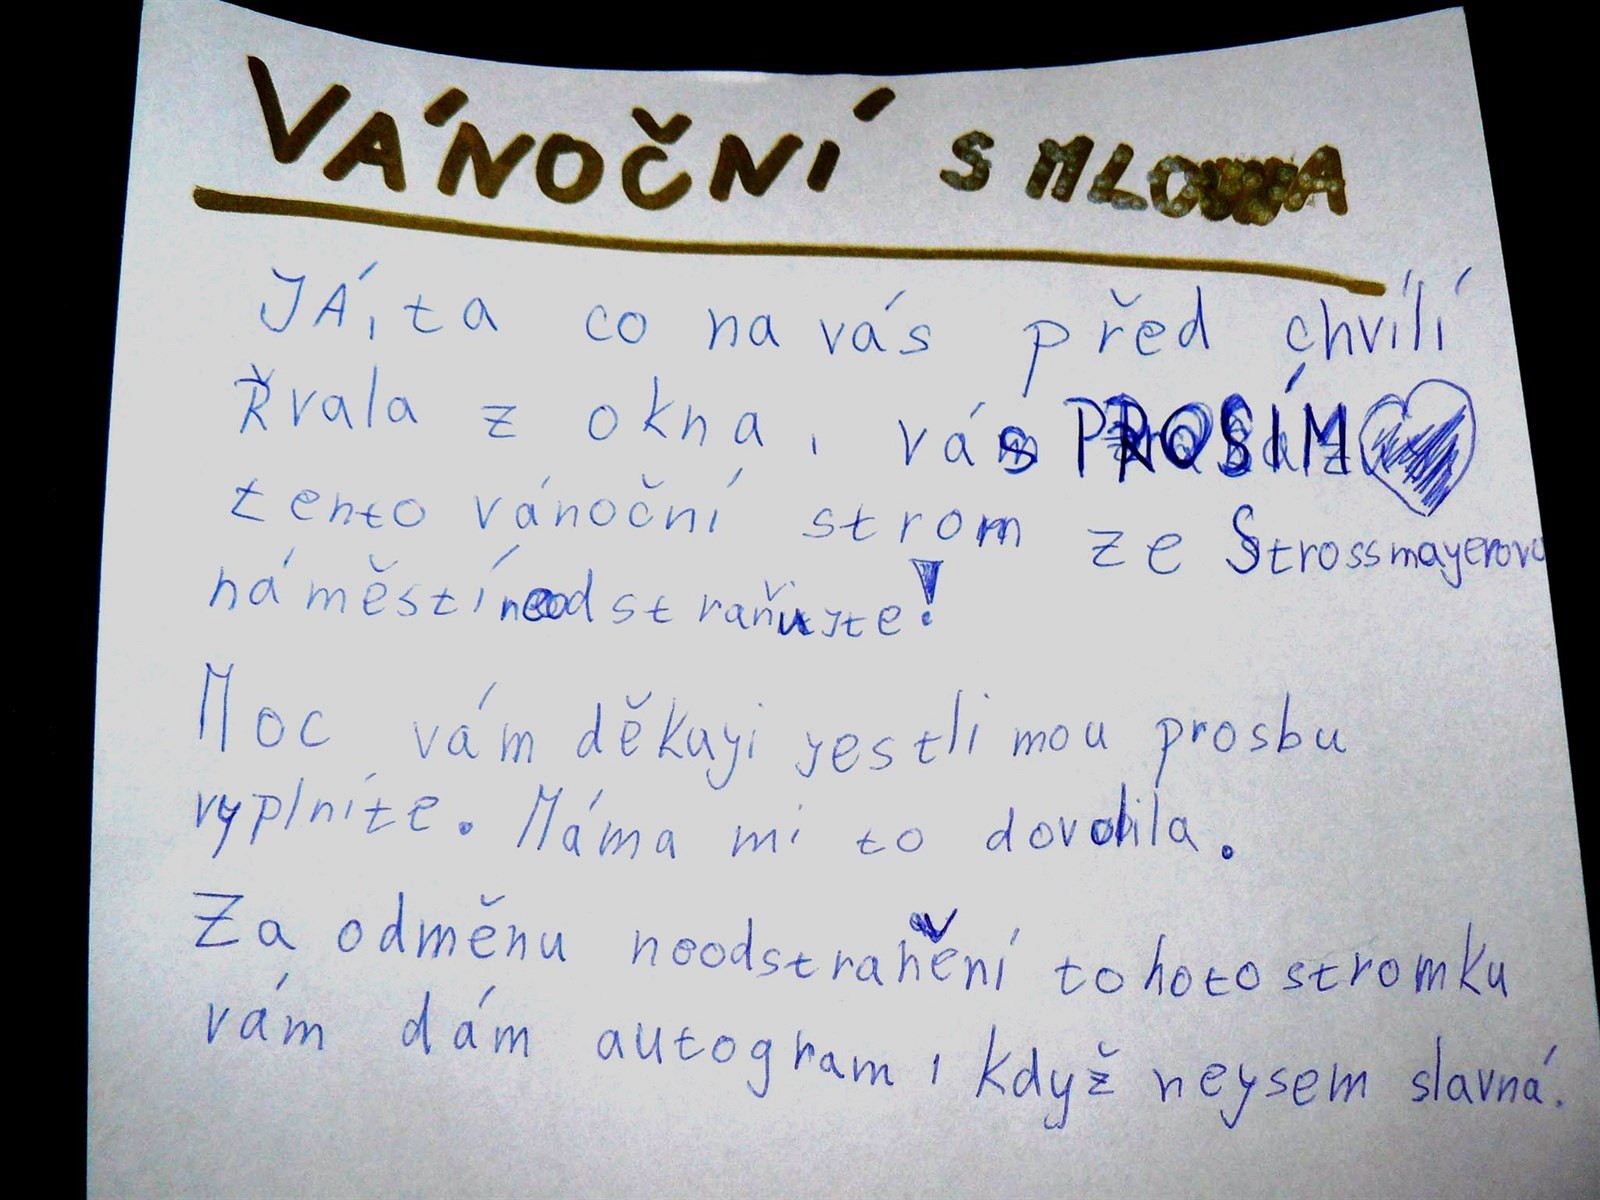 VÁNOČNÍ SMLOUVA
JÁ, ta co na vás před chvílí
Řvala z okna, vás PROSÍM
tento vánoční strom ze Strossmayerova
náměstí neodstraňujte!
Moc vám děkuji jestli mou prosbu
vyplníte. Máma mi to dovolila.
Za odměnu neodstranění tohoto stromku
vám dám autogram, Když nejsem slavná.